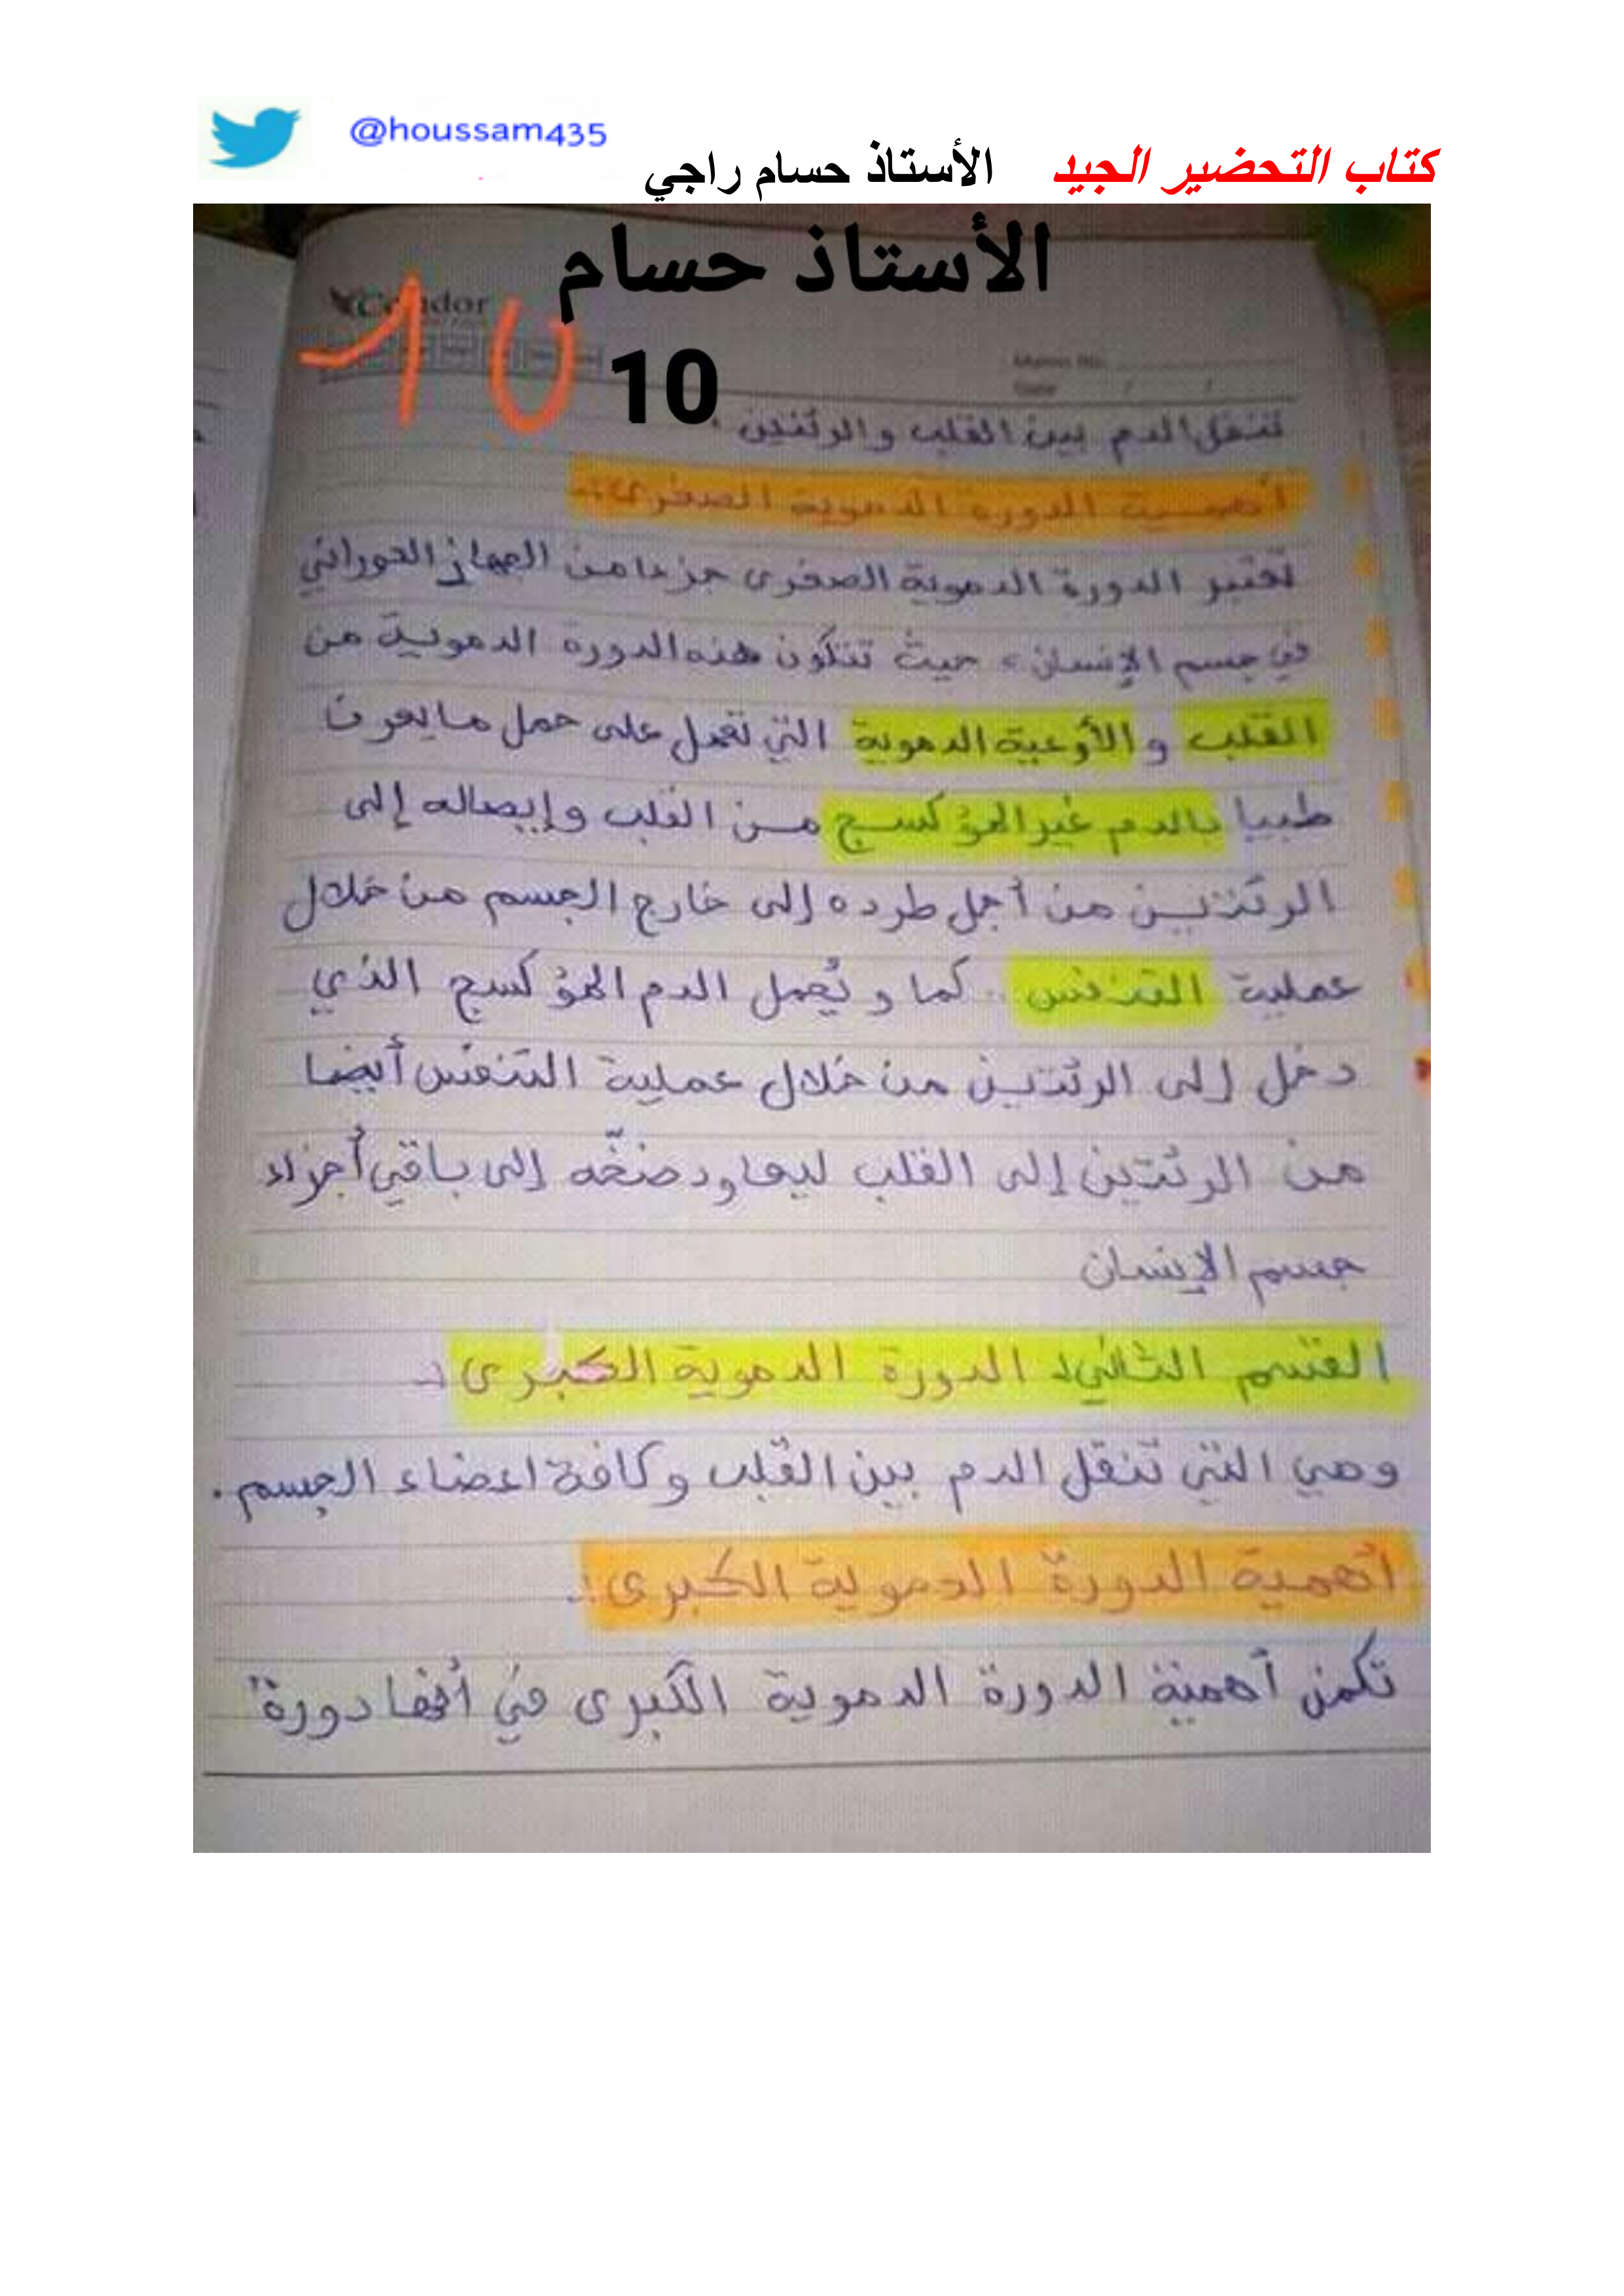 @houssam435
كتاب التحضير الجيد الأستاذ حسام راجي
الأستاذ حسام
Condor
10 10
Memo No.
Date / /
تنقل الدم بين القلب والرئتين.
أهمية الدورة الدموية الصغرى:
تعتبر الدورة الدموية الصغرى جزءا من الجهاز الدوراني
في جسم الإنسان، حيث تتكون هذه الدورة الدموية من
القلب والأوعية الدموية التي تعمل على حمل ما يعرف
طبيا بالدم غير المؤكسج من القلب وإيصاله إلى
الرئتين من أجل طرده إلى خارج الجسم من خلال
عملية التنفس.. كما و يُحمل الدم المؤكسج الذي
دخل إلى الرئتين من خلال عملية التنفس أيضا
من الرئتين إلى القلب ليعاود ضخّه إلى باقي أجزاء
جسم الإنسان
القسم الثاني: الدورة الدموية الكبرى:
وهي التي تنقل الدم بين القلب وكافة اعضاء الجسم.
أهمية الدورة الدموية الكبرى:
تكمن أهمية الدورة الدموية الكبرى في أنها دورة